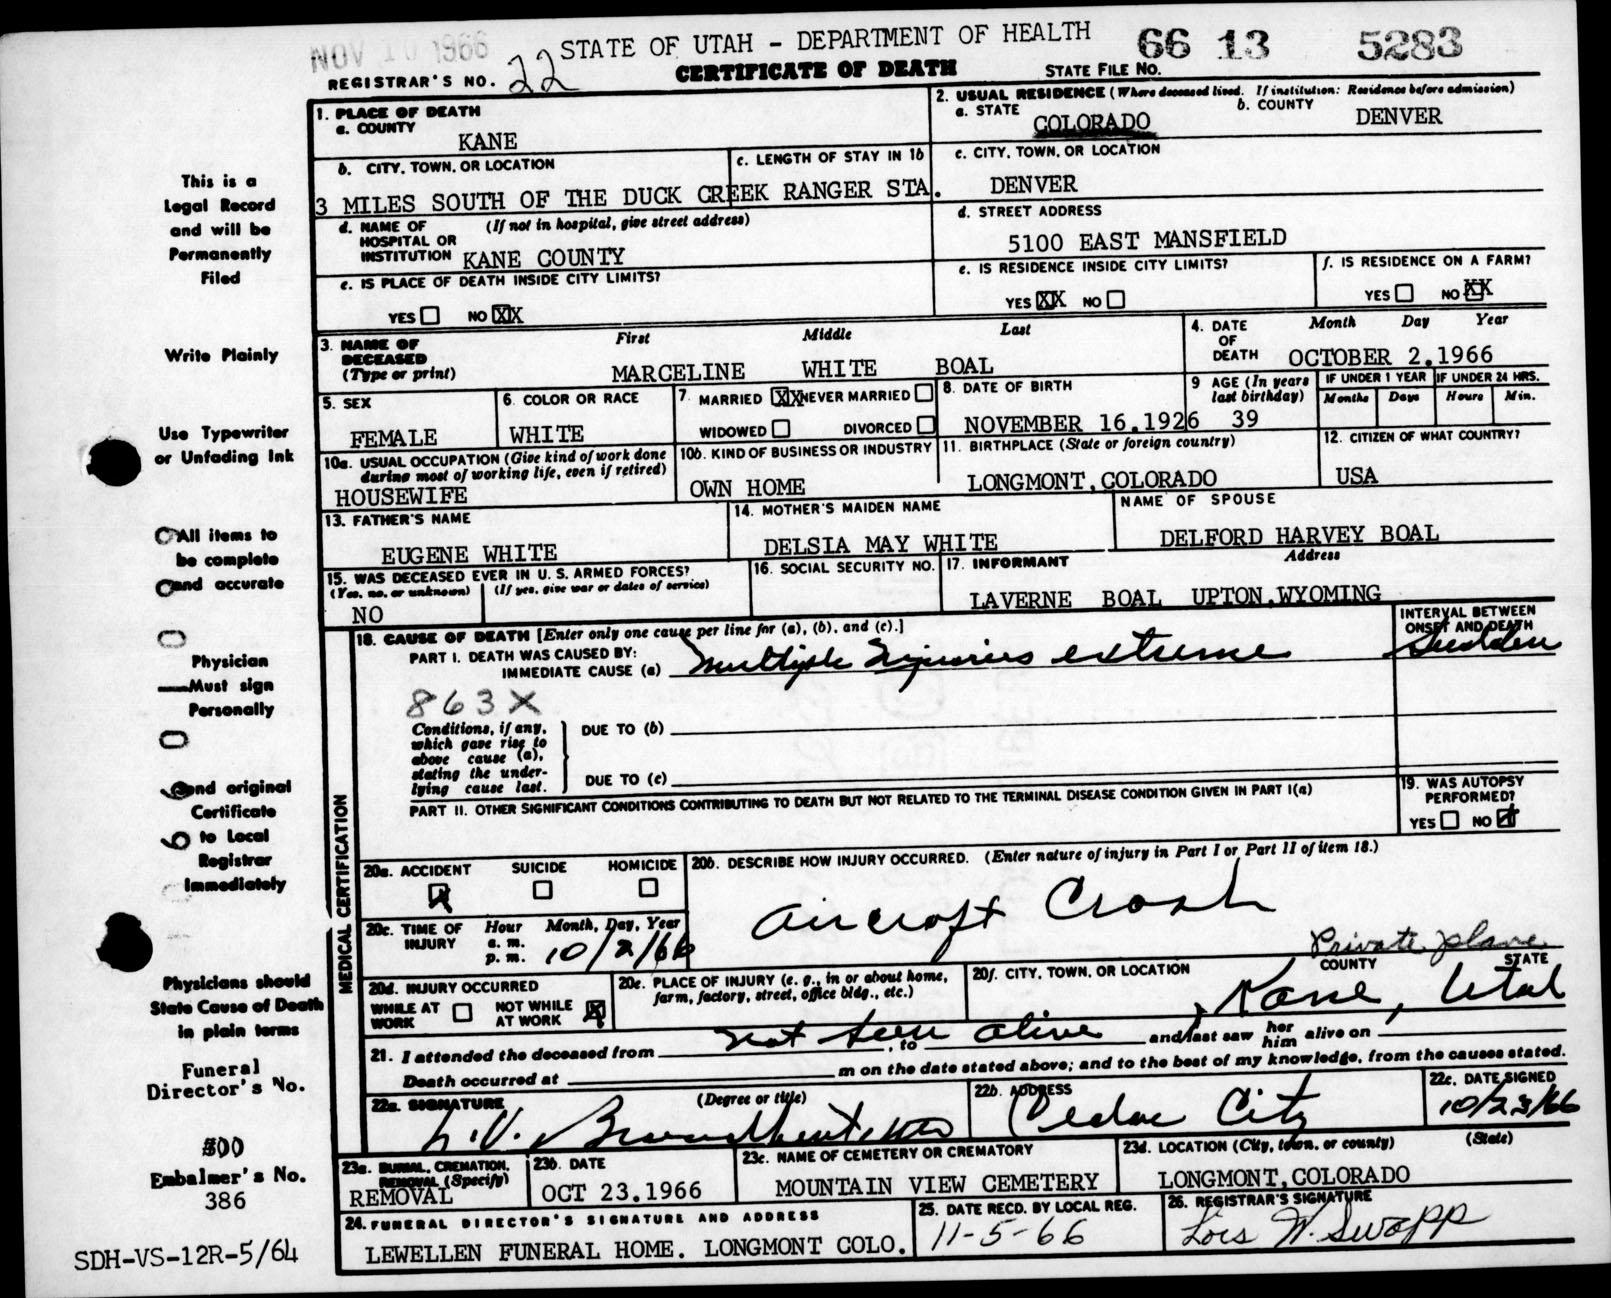 NOV 10 1966
STATE OF UTAH - DEPARTMENT OF HEALTH
66 13 5283
REGISTRAR'S NO. 22
CERTIFICATE OF DEATH
STATE FILE NO.
1. PLACE OF DEATH
a. COUNTY
KANE
2. USUAL RESIDENCE (Where deceased lived. If institution: Residence before admission)
a. STATE COLORADO
b. COUNTY DENVER
b. CITY, TOWN, OR LOCATION
c. LENGTH OF STAY IN 1b
3 MILES SOUTH OF THE DUCK CREEK RANGER STA.
c. CITY, TOWN, OR LOCATION
DENVER
d. NAME OF HOSPITAL OR INSTITUTION (If not in hospital, give street address)
KANE COUNTY
d. STREET ADDRESS
5100 EAST MANSFIELD
e. IS PLACE OF DEATH INSIDE CITY LIMITS?
YES NO XX
e. IS RESIDENCE INSIDE CITY LIMITS?
YES XX NO
f. IS RESIDENCE ON A FARM?
YES NO XX
3. NAME OF DECEASED (Type or print)
First Middle Last
MARCELINE WHITE BOAL
4. DATE OF DEATH
Month Day Year
OCTOBER 2.1966
5. SEX
FEMALE
6. COLOR OR RACE
WHITE
7. MARRIED XX NEVER MARRIED
WIDOWED DIVORCED
8. DATE OF BIRTH
NOVEMBER 16.1926
9 AGE (In years last birthday)
39
IF UNDER 1 YEAR
Months Days
IF UNDER 24 HRS.
Hours Min.
10a. USUAL OCCUPATION (Give kind of work done during most of working life, even if retired)
HOUSEWIFE
10b. KIND OF BUSINESS OR INDUSTRY
OWN HOME
11. BIRTHPLACE (State or foreign country)
LONGMONT,COLORADO
12. CITIZEN OF WHAT COUNTRY?
USA
13. FATHER'S NAME
EUGENE WHITE
14. MOTHER'S MAIDEN NAME
DELSIA MAY WHITE
NAME OF SPOUSE
DELFORD HARVEY BOAL
15. WAS DECEASED EVER IN U. S. ARMED FORCES?
(Yes, no, or unknown) (If yes, give war or dates of service)
NO
16. SOCIAL SECURITY NO.
17. INFORMANT Address
LAVERNE BOAL UPTON,WYOMING
MEDICAL CERTIFICATION
18. CAUSE OF DEATH [Enter only one cause per line for (a), (b), and (c).]
INTERVAL BETWEEN ONSET AND DEATH
PART I. DEATH WAS CAUSED BY:
IMMEDIATE CAUSE (a) Multiple Injuries extreme Sudden
863X
Conditions, if any, which gave rise to above cause (a), stating the underlying cause last.
DUE TO (b)
DUE TO (c)
PART II. OTHER SIGNIFICANT CONDITIONS CONTRIBUTING TO DEATH BUT NOT RELATED TO THE TERMINAL DISEASE CONDITION GIVEN IN PART I(a)
19. WAS AUTOPSY PERFORMED?
YES NO X
20a. ACCIDENT SUICIDE HOMICIDE
X
20b. DESCRIBE HOW INJURY OCCURRED. (Enter nature of injury in Part I or Part II of item 18.)
Aircraft Crash
Private plane
20c. TIME OF INJURY
Hour Month, Day, Year
a. m.
p. m.
10/2/66
20d. INJURY OCCURRED
WHILE AT WORK NOT WHILE AT WORK X
20e. PLACE OF INJURY (e. g., in or about home, farm, factory, street, office bldg., etc.)
20f. CITY, TOWN, OR LOCATION COUNTY STATE
Kane, Utah
21. I attended the deceased from Not seen alive, to and last saw her him alive on
Death occurred at m on the date stated above; and to the best of my knowledge, from the causes stated.
22a. SIGNATURE (Degree or title)
22b. ADDRESS
Cedar City
22c. DATE SIGNED
10/23/66
23a. BURIAL, CREMATION, REMOVAL (Specify)
REMOVAL
23b. DATE
OCT 23.1966
23c. NAME OF CEMETERY OR CREMATORY
MOUNTAIN VIEW CEMETERY
23d. LOCATION (City, town, or county) (State)
LONGMONT,COLORADO
24. FUNERAL DIRECTOR'S SIGNATURE AND ADDRESS
LEWELLEN FUNERAL HOME. LONGMONT COLO.
25. DATE RECD. BY LOCAL REG.
11-5-66
26. REGISTRAR'S SIGNATURE
Lois W. Swapp
This is a
Legal Record
and will be
Permanently
Filed
Write Plainly
Use Typewriter
or Unfading Ink
All items to
be complete
and accurate
Physician
Must sign
Personally
Send original
Certificate
to Local
Registrar
Immediately
Physicians should
State Cause of Death
in plain terms
Funeral
Director's No.
500
Embalmer's No.
386
SDH-VS-12R-5/64